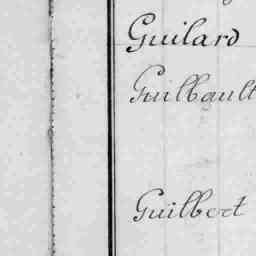 Guilard
Guilbault
Guilbert